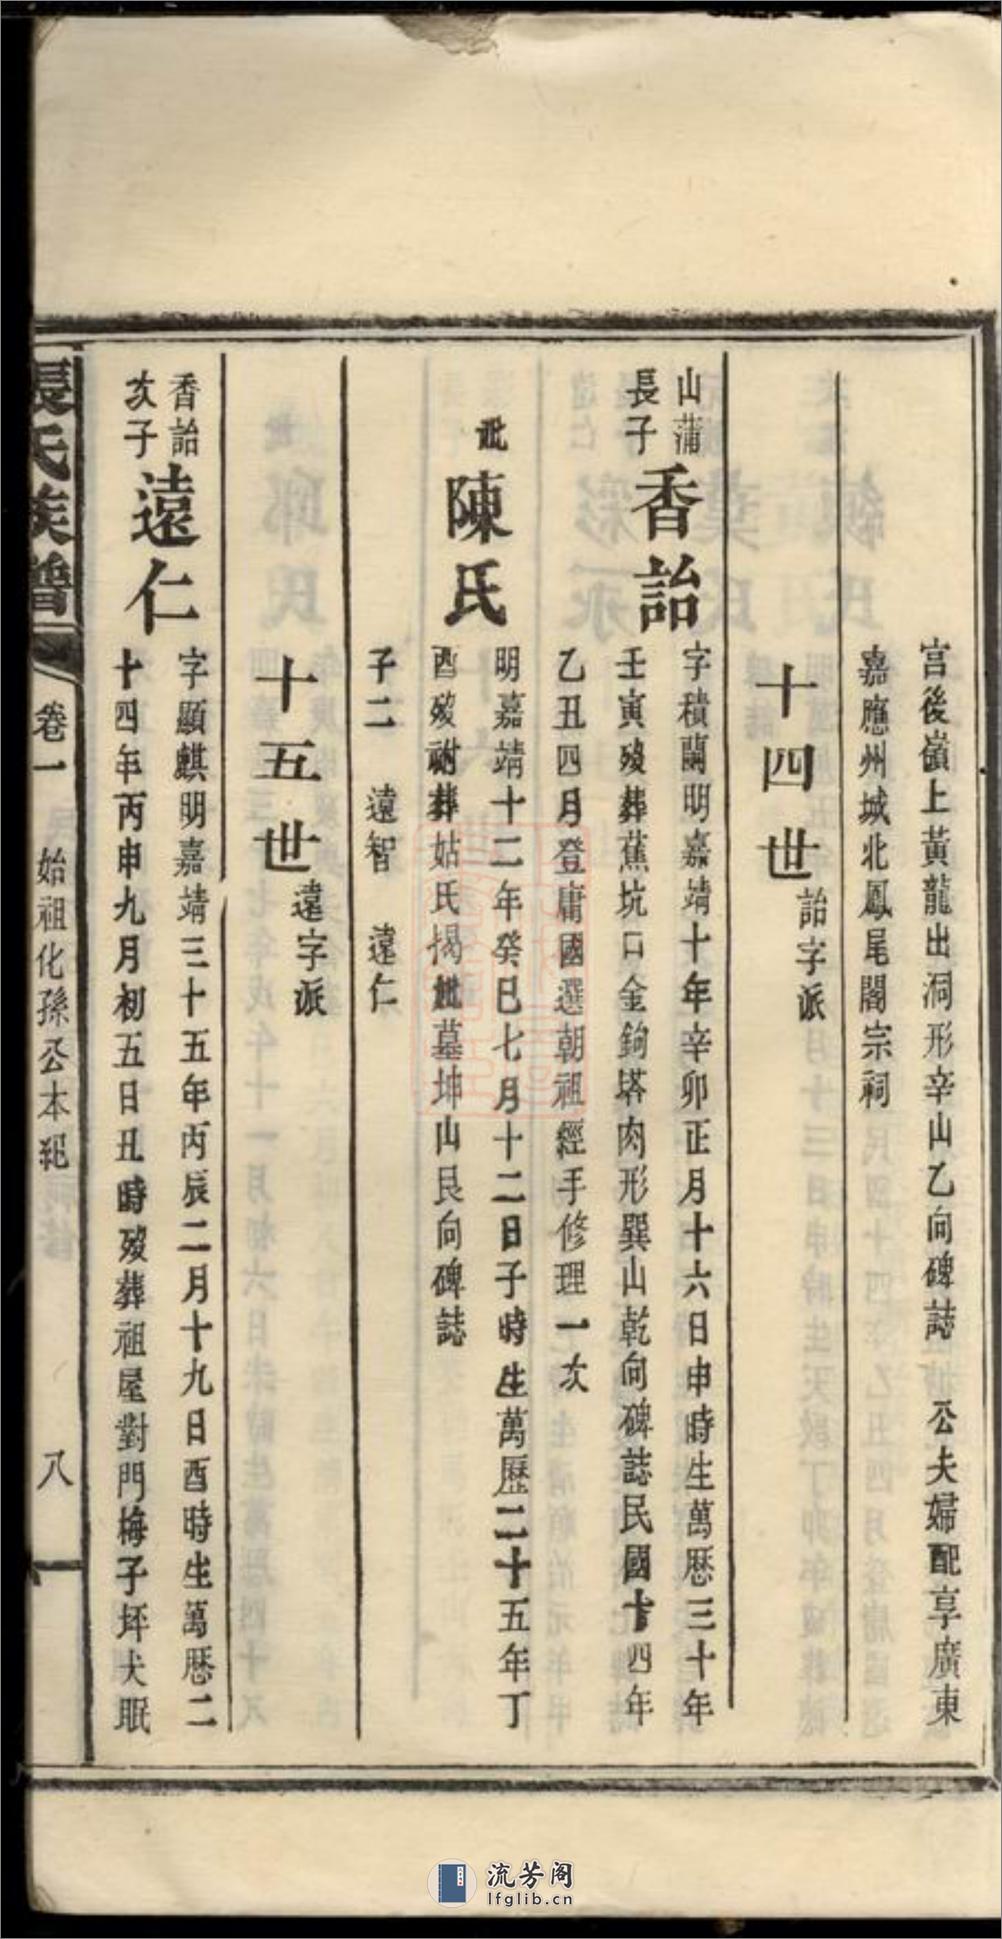 宫後嶺上黃龍出洞形辛山乙向碑誌　公夫婦配享廣東
嘉應州城北鳳尾閣宗祠
十四世　詒字派
山蒲
長子
香詒
字積蘭明嘉靖十年辛卯正月十六日申時生萬歷三十年
壬寅歿葬蕉坑口金鉤塔肉形巽山乾向碑誌民國十四年
乙丑四月登庸國選朝祖經手修理一次
妣
陳氏
明嘉靖十二年癸巳七月十二日子時生萬歷二十五年丁
酉歿祔葬姑氏揭妣墓坤山艮向碑誌
子二　遠智　遠仁
十五世　遠字派
香詒
次子
遠仁
字顯麒明嘉靖三十五年丙辰二月十九日酉時生萬歷二
十四年丙申九月初五日丑時歿葬祖屋對門梅子坪犬眠
張氏族譜　卷一　始祖化孫公本紀　八
流芳阁
lfglib.cn